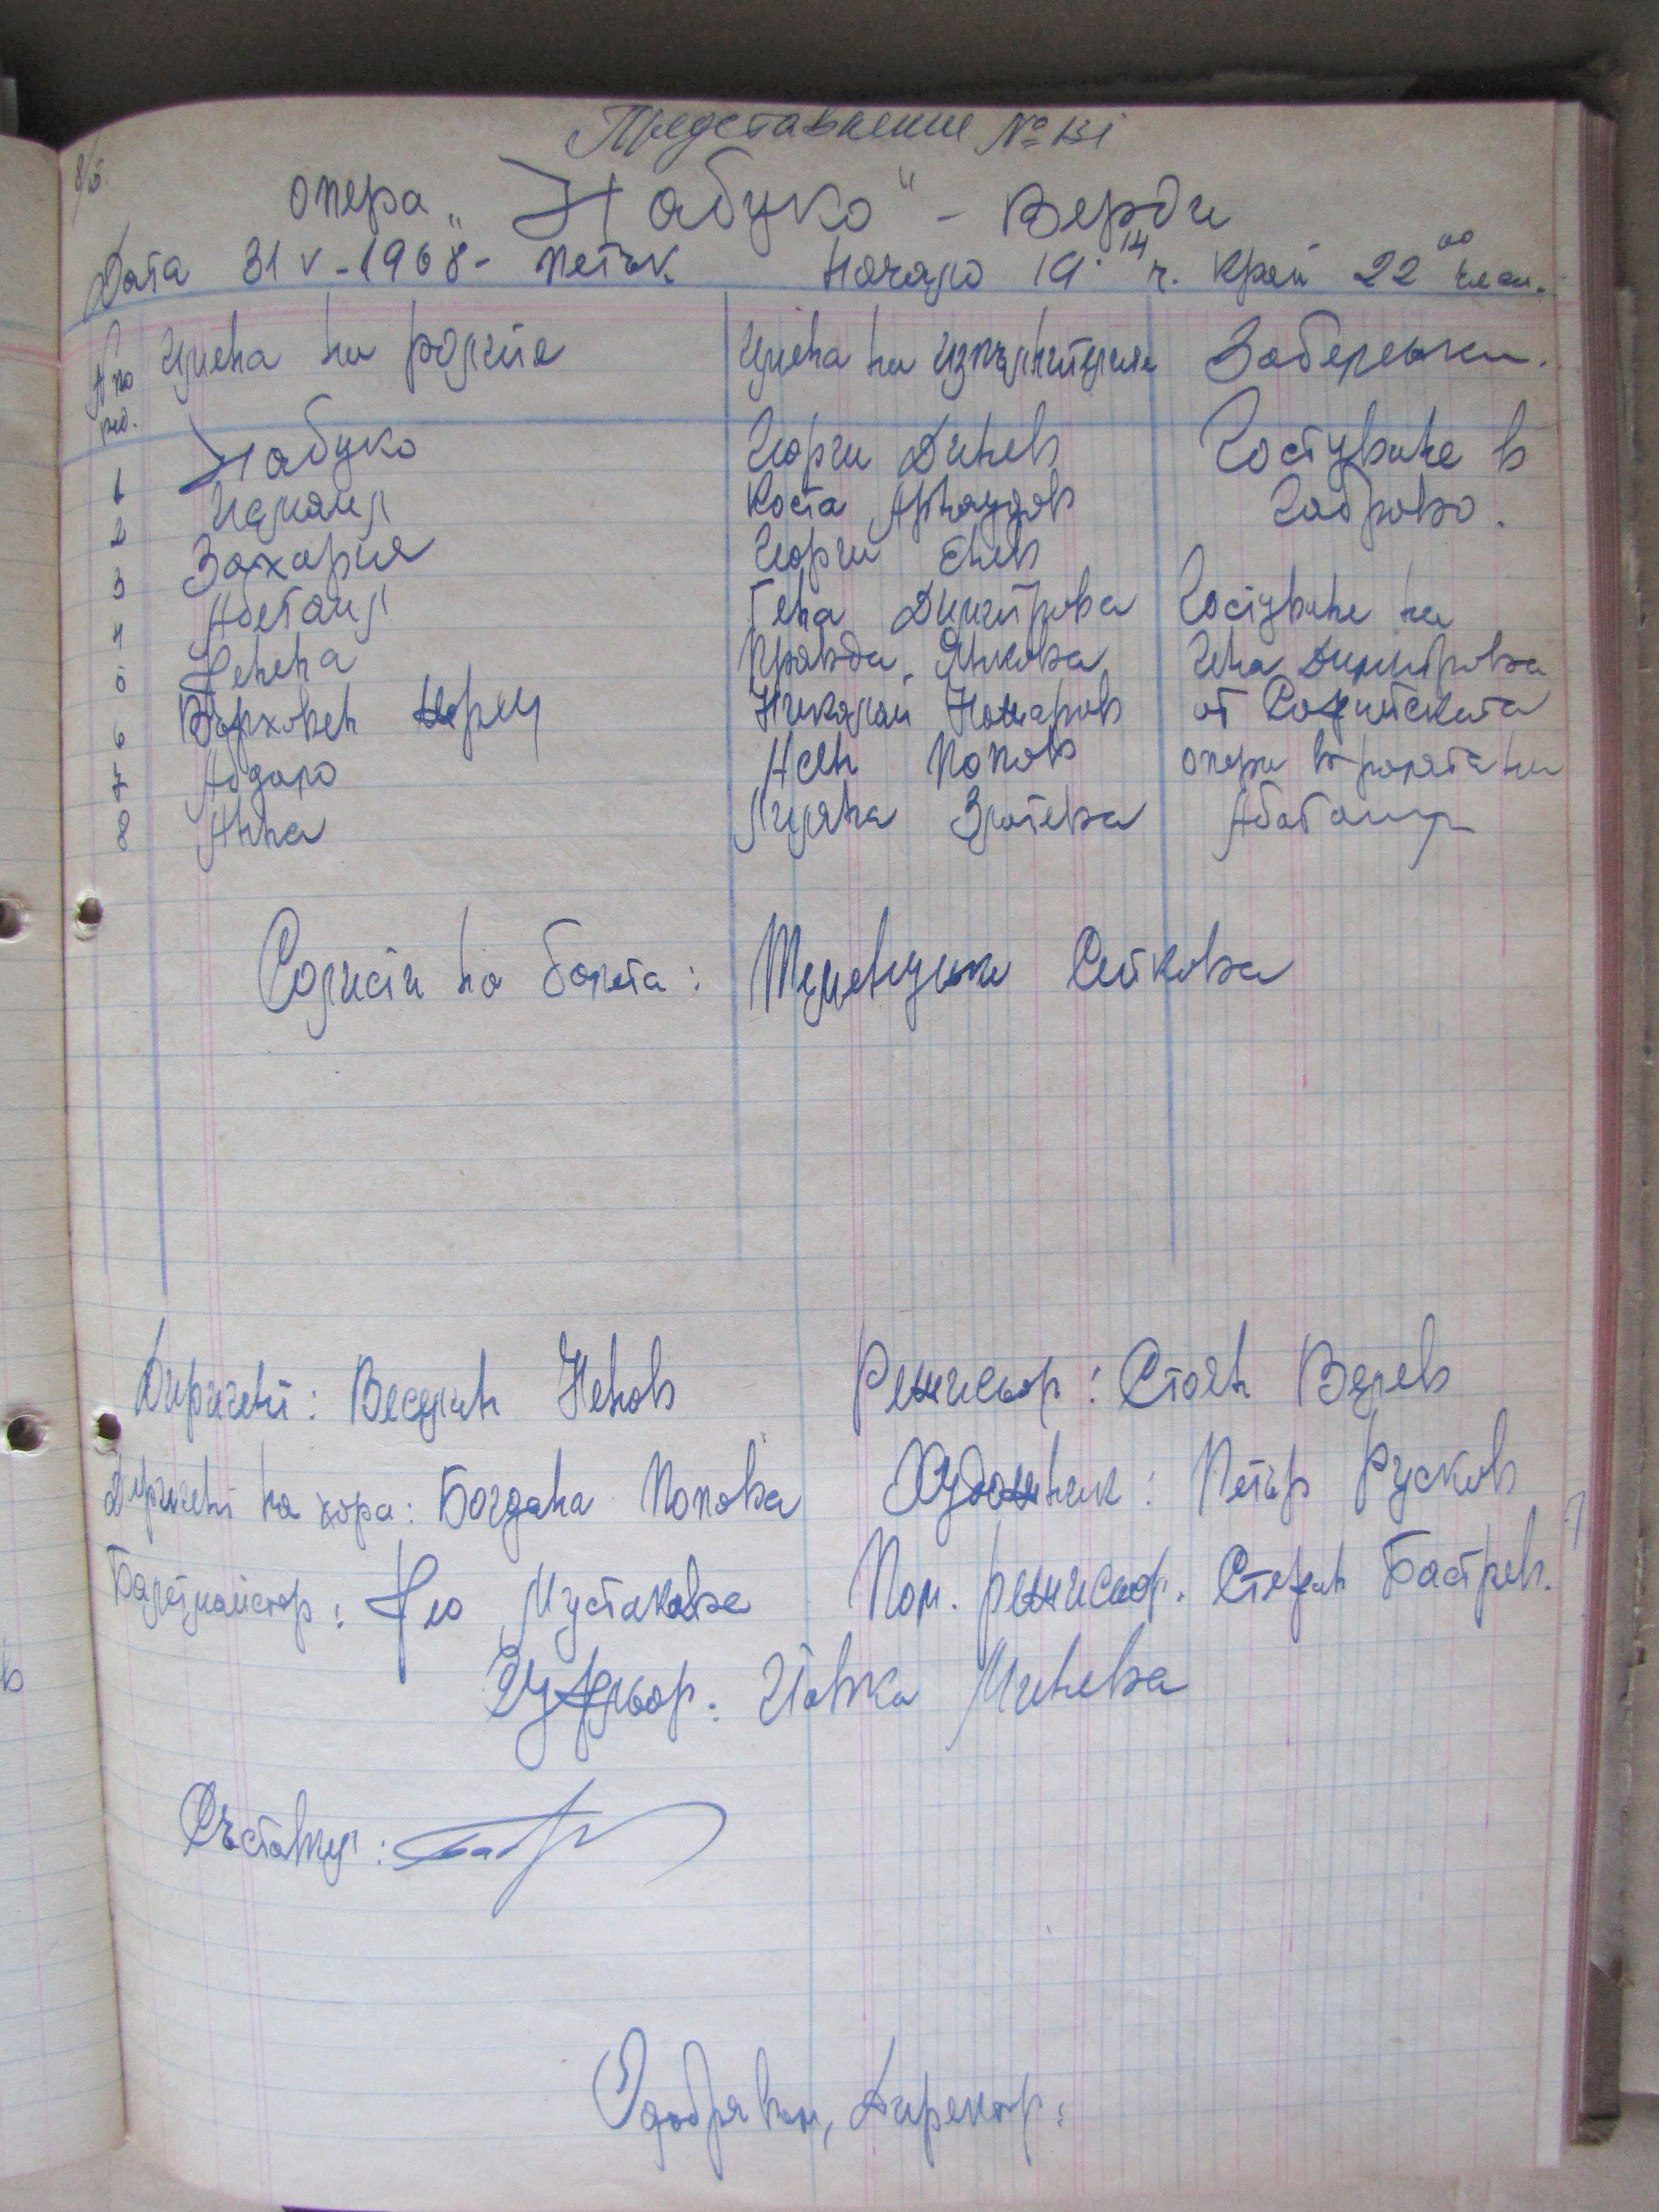 Представление № 131
опера „Набуко" - Верди
Дата 31 V - 1968 - петък Начало 19 14 ч. Край 22 00 часа.
№ по ред. Имена на ролите Имена на изпълнителите Забележки.
1 Набуко Георги Динев Гостуване в
2 Исмаил Коста Арнаудов Габрово.
3 Захария Георги Енев
4 Абегаил Гена Димитрова Гостуване на
5 Фенена Правда Янкова Гена Димитрова
6 Върховен жрец Николай Комаров от Софийската
7 Абдало Асен Попов опера в ролята на
8 Анна Лиляна Златева Абагаил
Солисти на балета: Теменужка Сейкова
Диригент: Веселин Ненов Режисьор: Стоян Велев
Диригент на хора: Богдана Попова Художник: Петър Русков
Балетмайстор: Клео Мустакова Пом. режисьор. Стефан Бастрев.
Суфльор: Йовка Минева
Съставил:
Одобрявам, Директор: